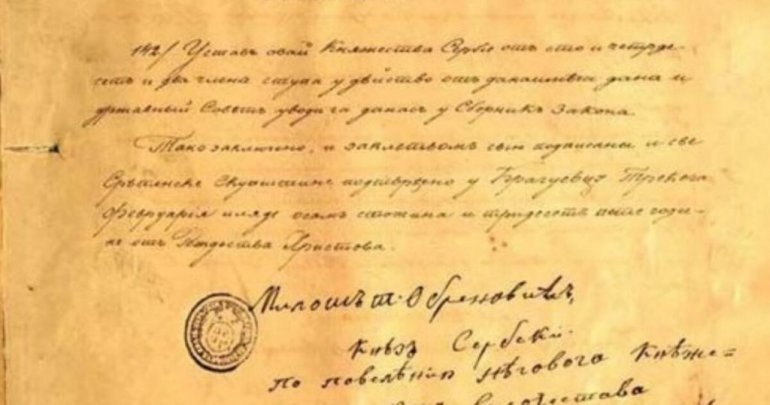 142/ Уставъ овай Княжества Сербіе отъ сто и четрде-
сетъ и два члена ступа у дѣйство отъ данашнѣгъ дана и
државный Совѣтъ уводи га данасъ у Сборникъ Закона.
Тако заключено, и заклетвомъ свію подписаны и све
Срѣтенске Скупштине подтврђено у Крагуевцу Трећега
Февруарія иляде осамъ стотина и тридесетъ пете годи-
не отъ Рождества Христова.
Милошъ Т. Обреновићъ,
Князъ Сербскій.
По повелѣнію Нѣговога Княже-